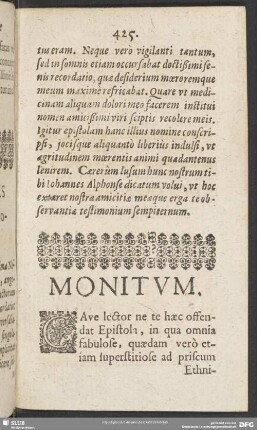 425.
tueram. Neque verò vigilanti tantum,
sed in somnis etiam occursabat doctißimi se-
nis recordatio, quæ desiderium mœroremque
meum maximè refricabat. Quare vt medi-
cinam aliquam dolori meo facerem institui
nomen amicißimi viri scriptis recolere meis.
Igitur epistolam hanc illius nomine conscri-
psi, jocisque aliquantò liberius indulsi, vt
ægritudinem mœrentis animi quadantenus
lenirem. Cæterùm lusum hunc nostrum ti-
bi Iohannes Alphonse dicatum volui, vt hoc
extaret nostræ amicitiæ meæque erga te ob-
servantiæ testimonium sempiternum.
MONITVM.
CAve lector ne te hæc offen-
dat Epistola, in qua omnia
fabulose, quædam verò et-
iam superstitiose ad priscum
Ethni-
SLUB
DFG